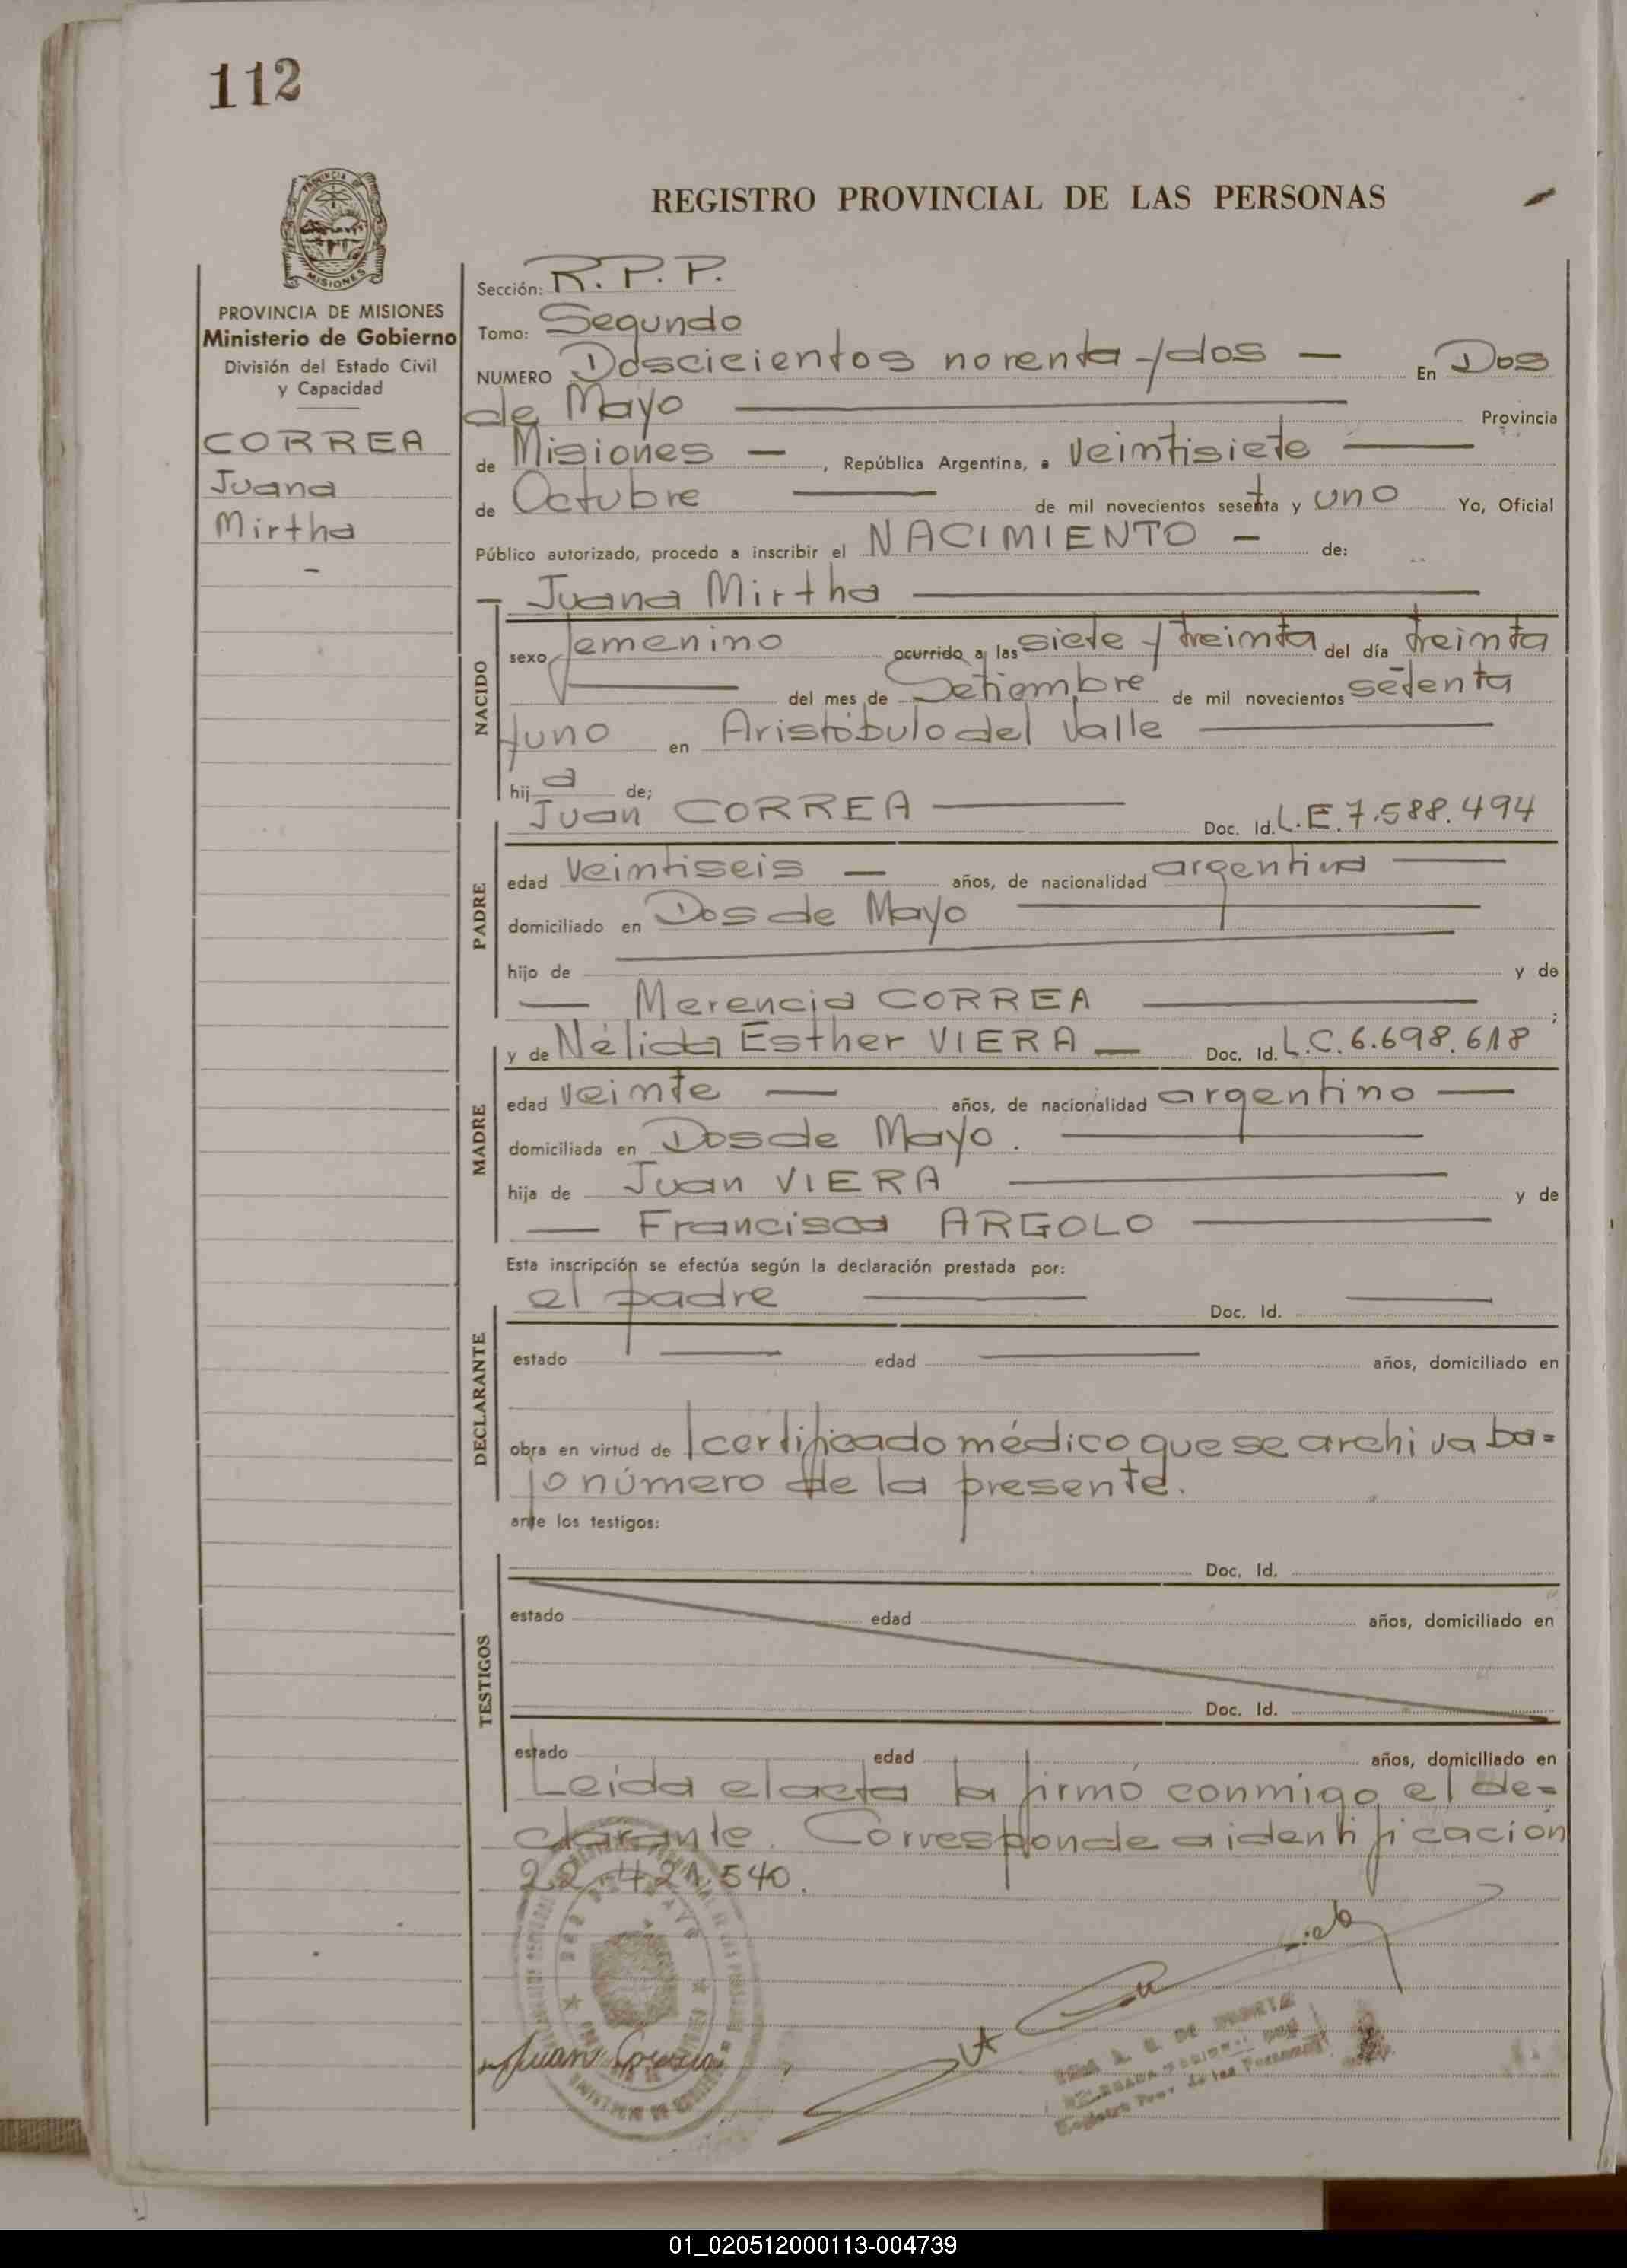 112
PROVINCIA DE MISIONES
REGISTRO PROVINCIAL DE LAS PERSONAS
PROVINCIA DE MISIONES
Ministerio de Gobierno
División del Estado Civil
y Capacidad
CORREA
Juana
Mirtha
-
Sección: R.P.P.
Tomo: Segundo
NUMERO Doscicientos norenta y dos — En Dos
de Mayo — Provincia
de Misiones — , República Argentina, a veintisiete —
de Octubre — de mil novecientos sesenta y uno Yo, Oficial
Público autorizado, procedo a inscribir el NACIMIENTO — de:
— Juana Mirtha —
NACIDO
sexo femenino ocurrido a las siete y treinta del día treinta
— del mes de Setiembre de mil novecientos setenta
y uno en Aristóbulo del Valle —
hij a de;
Juan CORREA — Doc. Id. L.E.7.588.494
PADRE
edad veintiseis — años, de nacionalidad argentina —
domiciliado en Dos de Mayo —
hijo de — y de
— Merencia CORREA — ;
y de Nélida Esther VIERA — Doc. Id. L.C.6.698.618
MADRE
edad veinte — años, de nacionalidad argentino —
domiciliada en Dos de Mayo. —
hija de Juan VIERA — y de
— Francisca ARGOLO —
Esta inscripción se efectúa según la declaración prestada por:
el padre — Doc. Id. —
DECLARANTE
estado — edad — años, domiciliado en
obra en virtud de certificado médico que se archiva ba=
jo número de la presente.
ante los testigos:
TESTIGOS
Doc. Id.
estado edad años, domiciliado en
Doc. Id.
estado edad años, domiciliado en
Leida el acta la firmó conmigo el de=
clarante. Corresponde a identificación
22.421.540.
DOS DE MAYO
Juan Correa
01_020512000113-004739